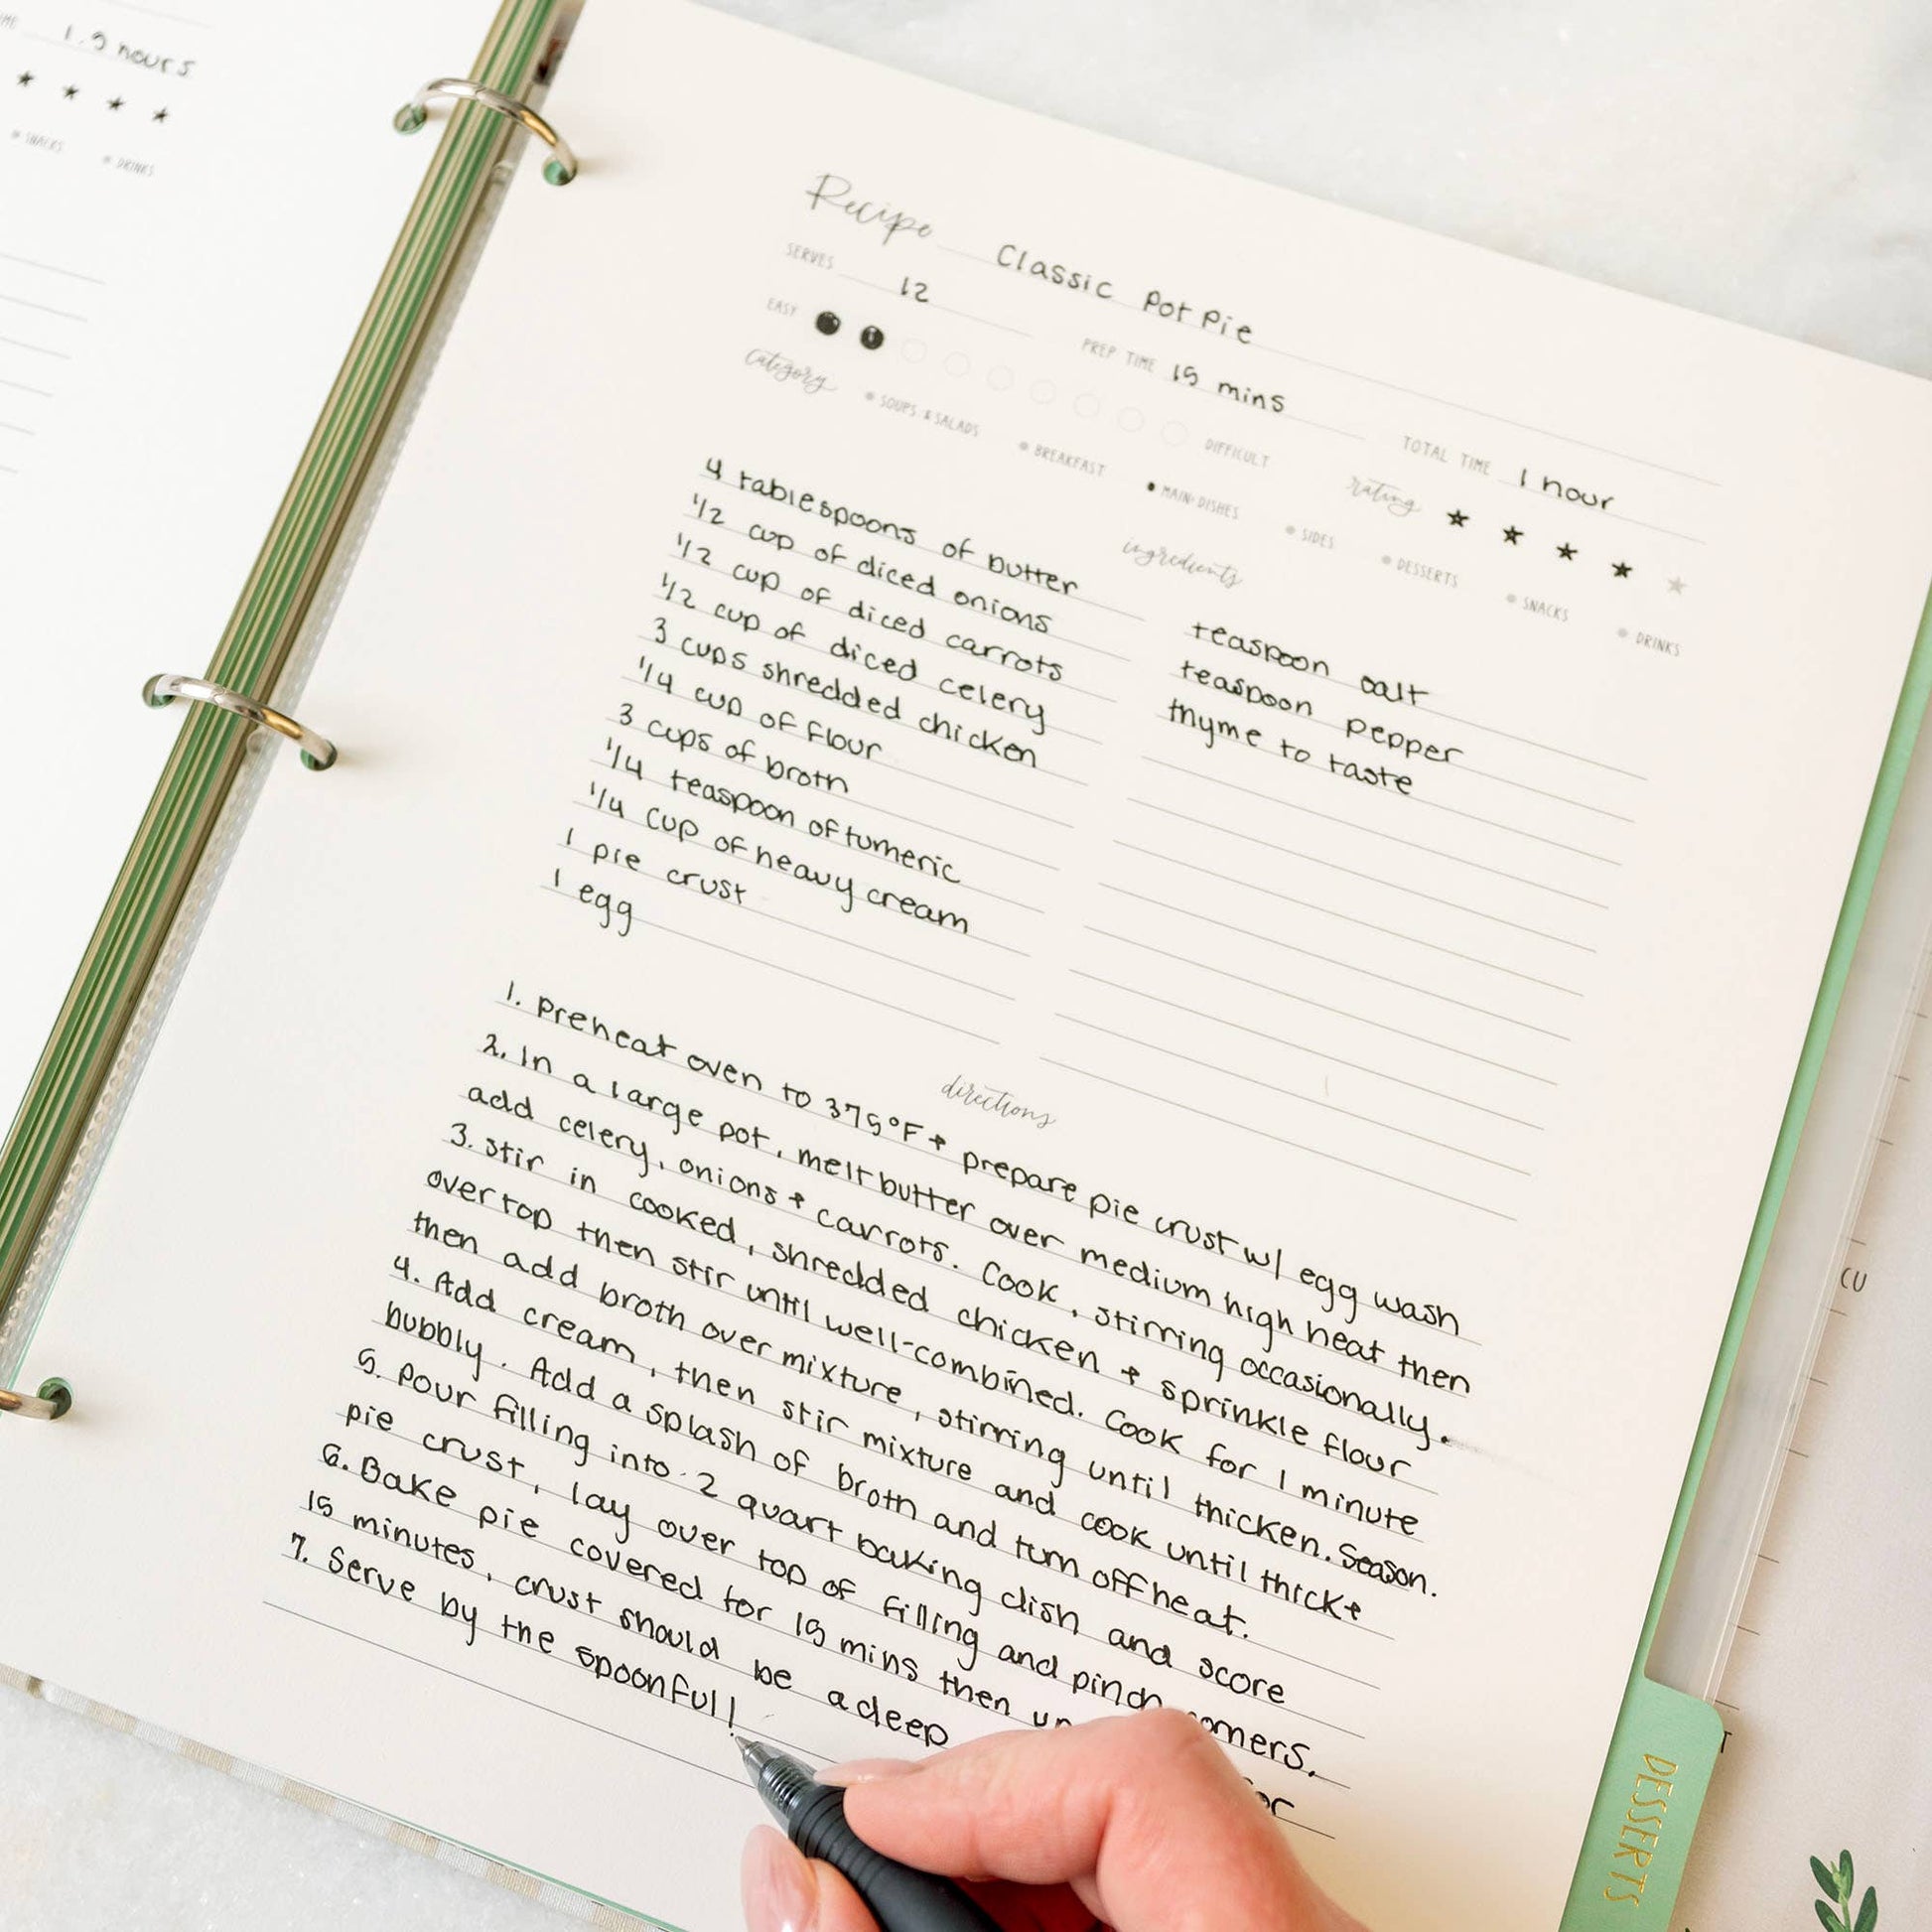 1.5 hours
SNACKS DRINKS
Recipe Classic Pot Pie
SERVES 12 PREP TIME 15 mins TOTAL TIME 1 hour
EASY DIFFICULT rating
category SOUPS & SALADS BREAKFAST MAIN DISHES SIDES DESSERTS SNACKS DRINKS
ingredients
4 tablespoons of butter
1/2 cup of diced onions
1/2 cup of diced carrots
1/2 cup of diced celery
3 cups shredded chicken
1/4 cup of flour
3 cups of broth
1/4 teaspoon of tumeric
1/4 cup of heavy cream
1 pie crust
1 egg
teaspoon salt
teaspoon pepper
thyme to taste
directions
1. preheat oven to 375°F + prepare pie crust w/ egg wash
2. In a large pot, melt butter over medium high heat then
add celery, onions + carrots. Cook, stirring occasionally.
3. stir in cooked, shredded chicken + sprinkle flour
over top then stir until well-combined. Cook for 1 minute
then add broth over mixture, stirring until thicken. Season.
4. Add cream, then stir mixture and cook until thick +
bubbly. Add a splash of broth and turn off heat.
5. Pour filling into 2 quart baking dish and score
pie crust, lay over top of filling and pinch corners.
6. Bake pie covered for 15 mins then for
15 minutes, crust should be a deep
7. Serve by the spoonful!
DESSERTS
CU